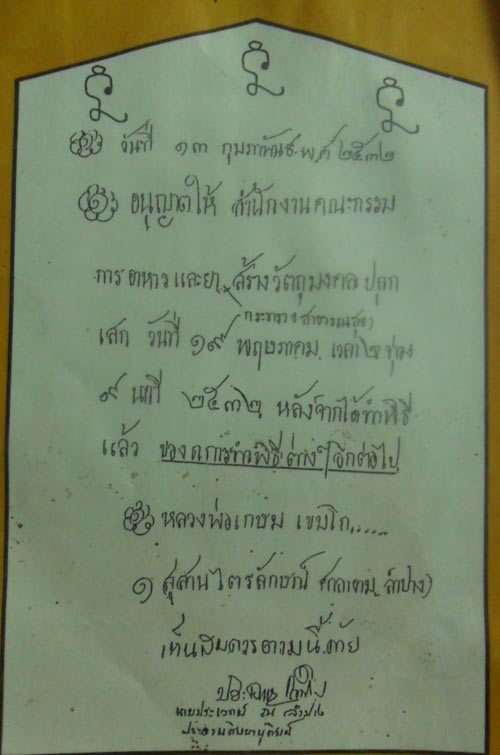 วันที่ ๑๓ กุมภาพันธ์ พ.ศ ๒๕๓๒
อนุญาตให้ สำนักงานคณะกรรม
การอาหารและยา สร้างวัตถุมงคล ปลุก
(กระทรวง สาธารณสุข)
เสก วันที่ ๑๙ พฤษภาคม เวลา
๙ นาที ๒๕๓๒ หลังจากได้ทำพิธี
แล้ว ของดการทำพิธีต่างๆอีกต่อไป
หลวงพ่อเกษม เขมโก.....
สุสานไตรลักษณ์ ลำปาง)
เห็นสมควรตามนี้ด้วย